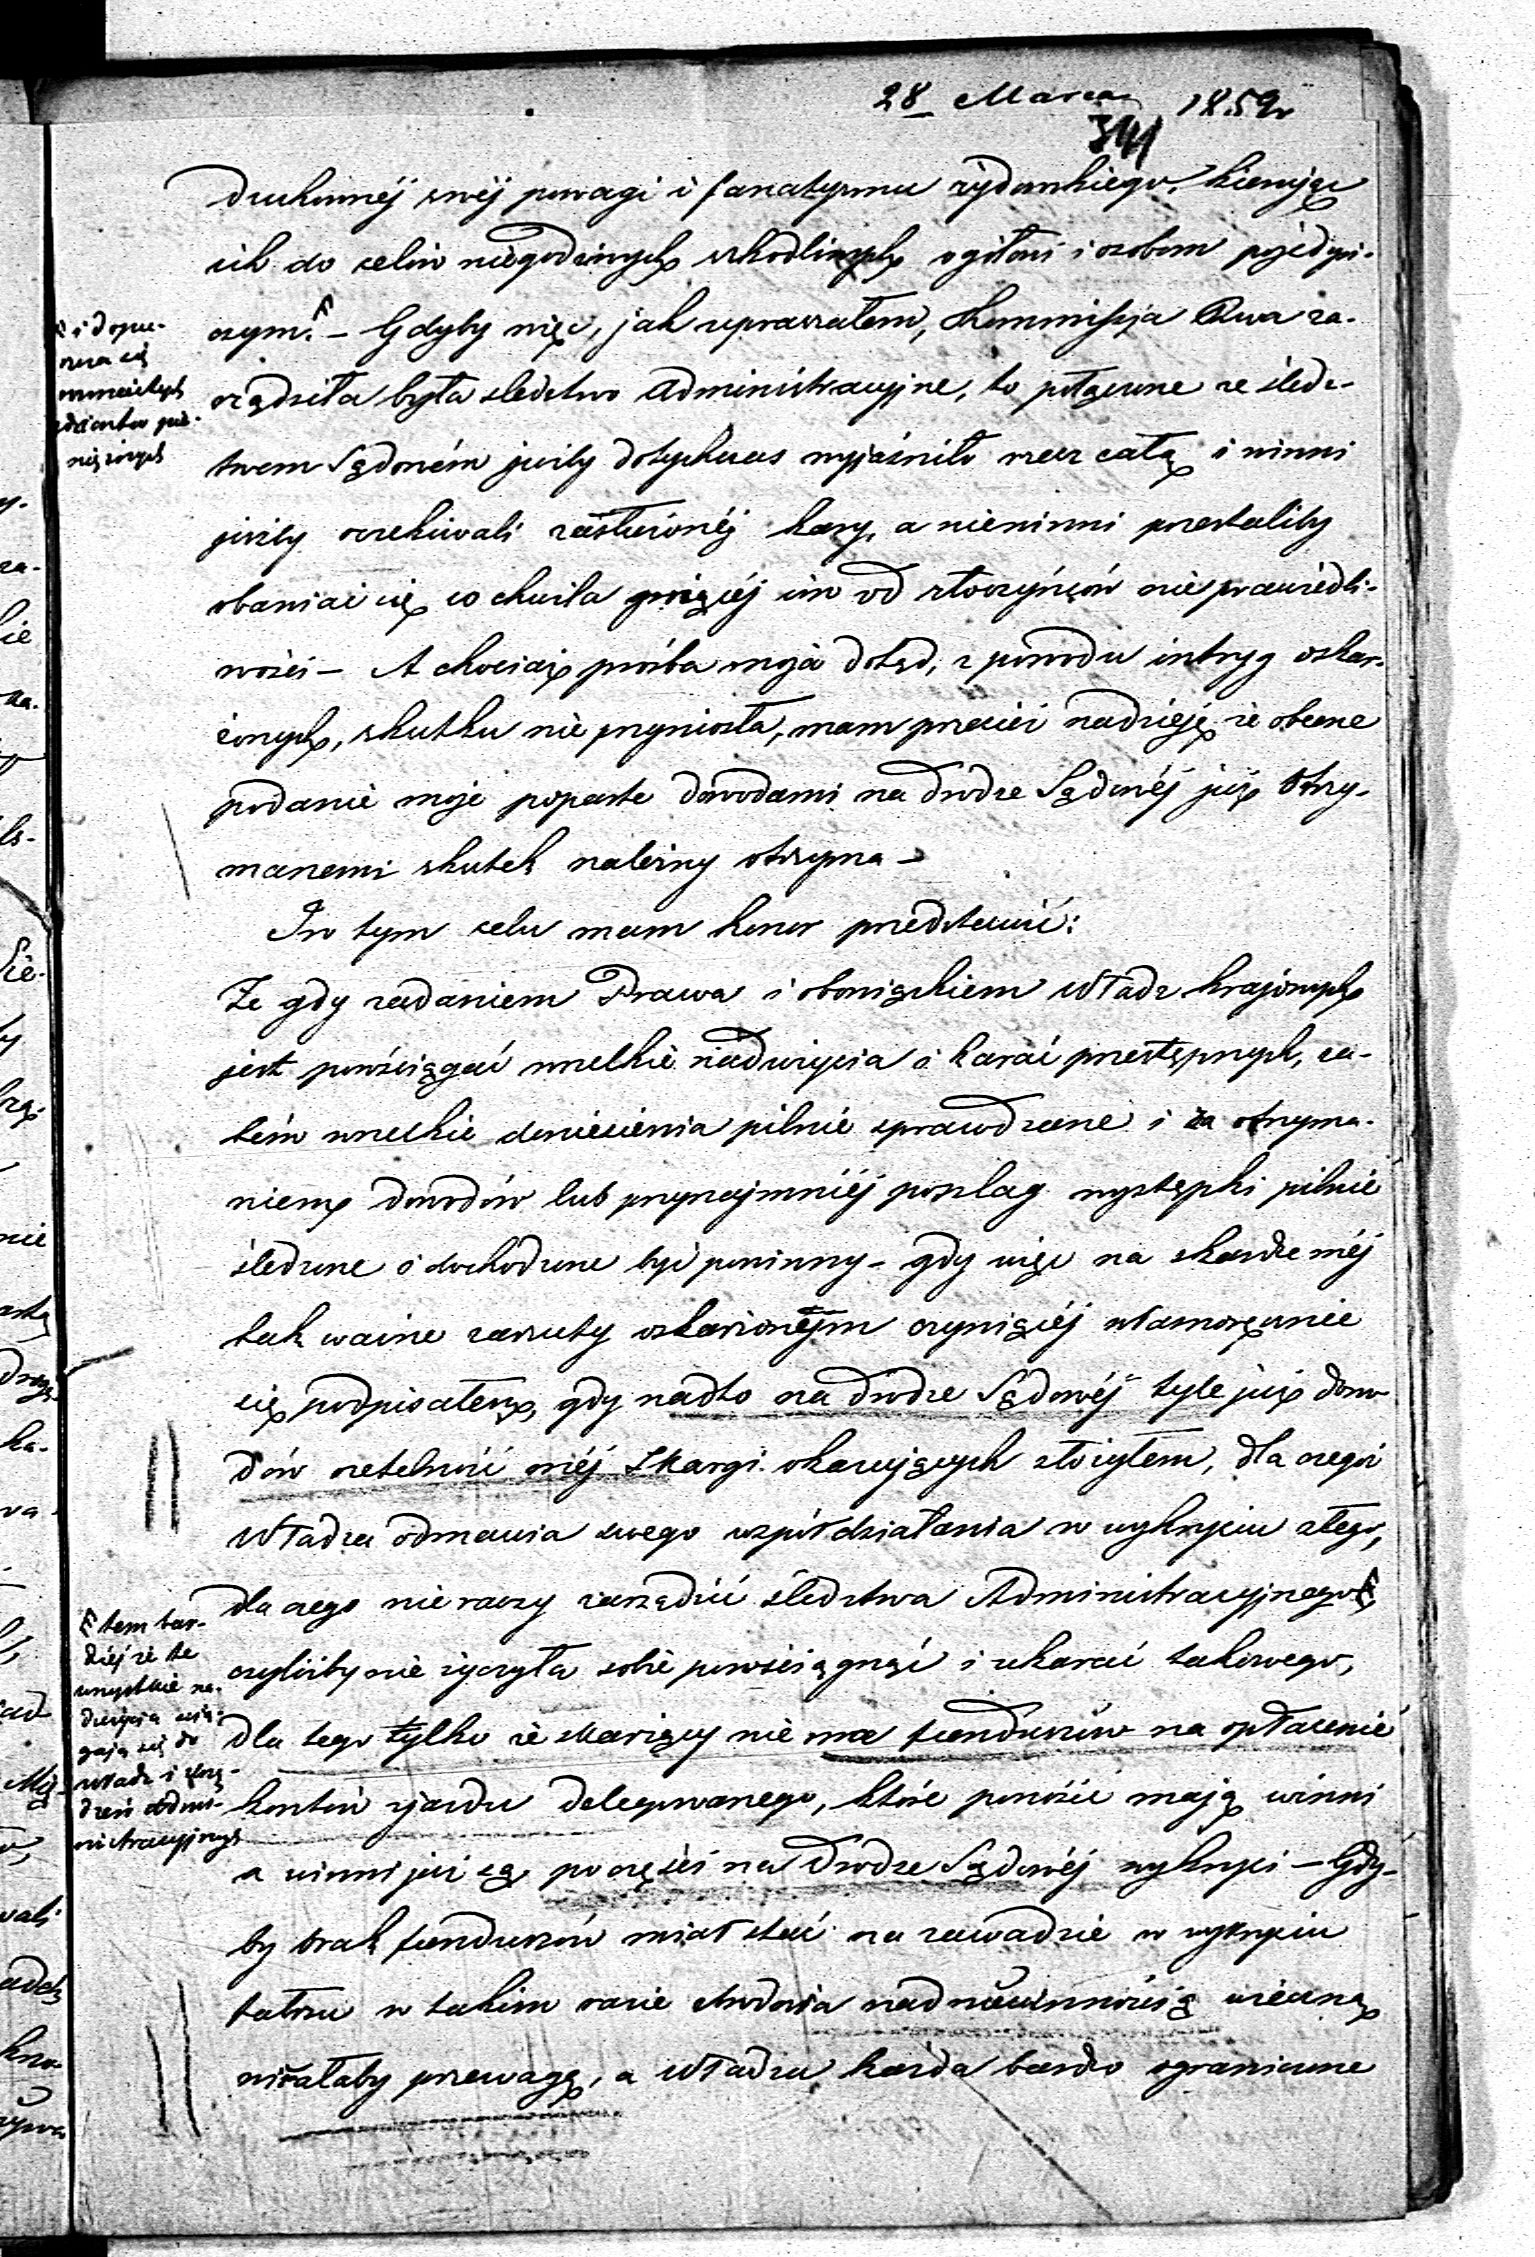 28 Marca 1859r
341
duchownéj swéj powagi i fanatyzmu żydowskiego. kierując
ich do celów niegodziwych szkodliwych ogółowi i osobom pojedyń-
czym. – Gdyby więc, jak upraszałem, Kommissja Rząwa za-
rządziła była śledztwo administracyjne, to połączone ze śledz-
twem Sądowém jużby dotychczas wyjaśniło rzecz całą i winni
jużby oczekiwali zasłużonéj kary, a niewinni przestaliby
obawiać się co chwila grożącéj im od złoczyńców niesprawiedli-
wości – A chociaż prośba moja dotąd, z powodu intryg oskar-
żonych, skutku nie przyniosła, mam przecież nadzieję że obecne
podanie moje poparte dowodami na drodze Sądowéj już otrzy-
manemi skutek należny otrzyma –
W tym celu mam honor przedstawić:
Że gdy zadaniem Prawa i obowiązkiem Władz krajowych
jest powściągać wszelkie nadużycia i karać przestępnych, za-
tém wszelkie doniesienia pilnie sprawdzane i za otrzyma-
niem dowodów lub przynajmniéj poszlag występki pilnie
śledzone i dochodzone być powinny – gdy więc na skardze méj
tak ważne zarzuty oskarżonym czyniącéj własnoręcznie
się podpisałem, gdy nadto na drodze Sądowéj tyle już dowo-
dów rzetelność méj Skargi okazujących złożyłem, dla czegoż
Władza odmawia swego współdziałania w wykryciu złego,
dla czego nie raczy zarządzić śledztwa Administracyjnego,
czyliżby nie życzyła sobie powściągnąć i ukarać takowego,
dla tego tylko że skarżący nie ma funduszów na opłacenie
kosztów zjazdu delegowanego, które ponosić mają winni
a winni już są po części na drodze Sądowéj wykryci – Gdy-
by brak funduszów miał stać na zawadzie w wykryciu
fałszu w takim razie zbrodnia nad niewinnością wieczną
miałaby przewagę, a Władza każda bardzo ograniczone
i dopu-
szcza się
rozmaitych
zdzierstw pie-
niężnych
tem bar-
dziéj że te
wszystkie na-
dużycia ścią-
gają się do
władz i urzą-
dzeń admi-
nistracyjnych